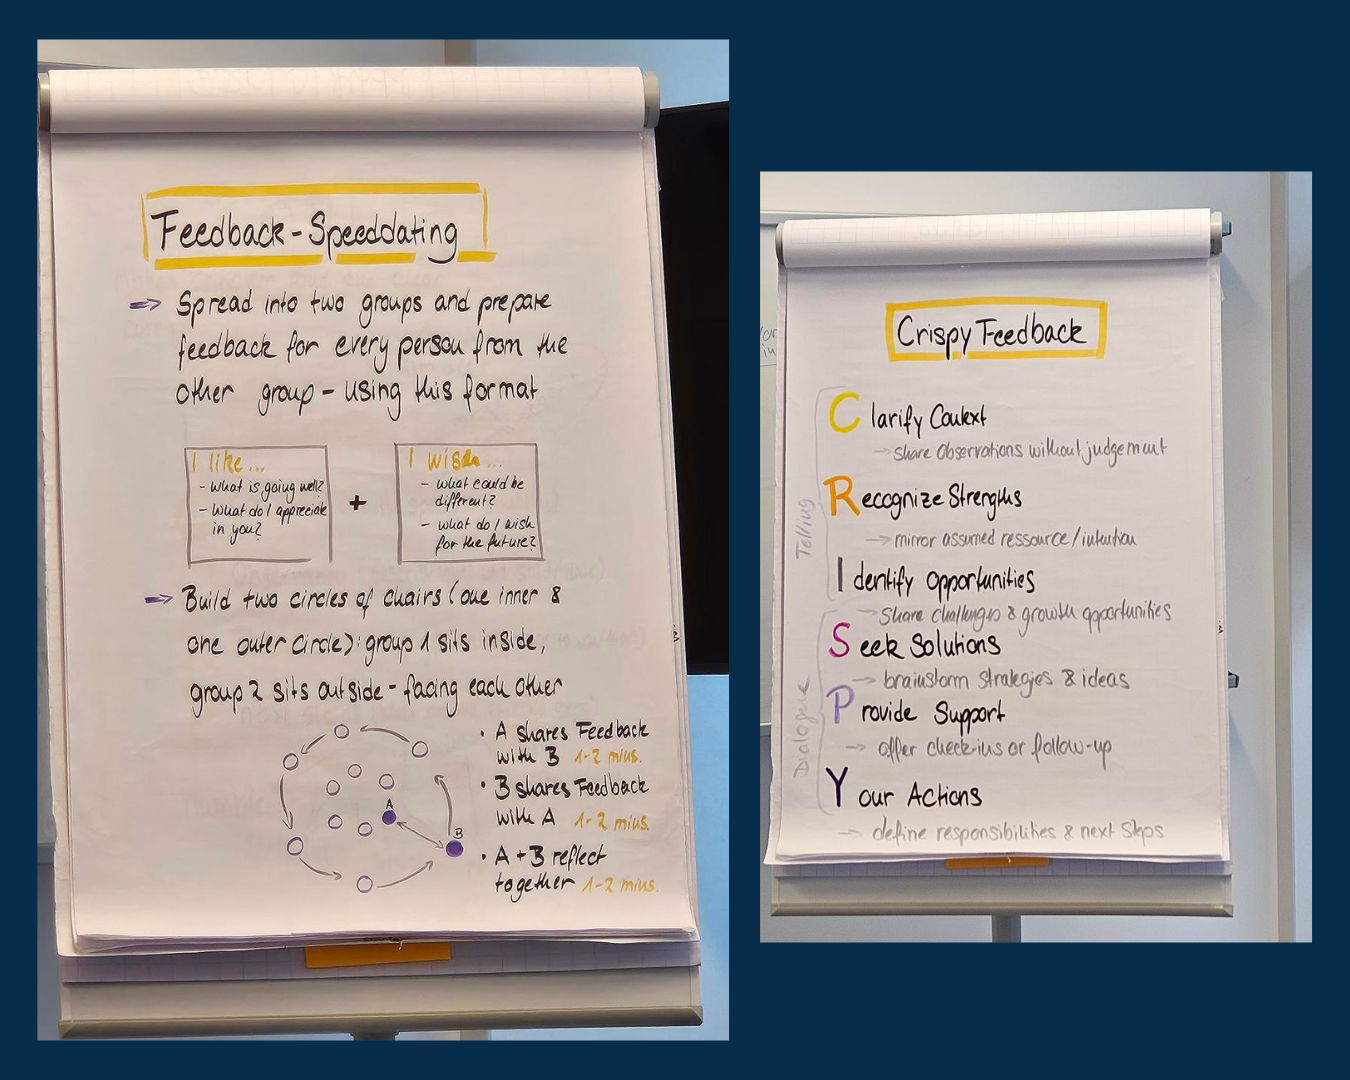 Feedback-Speeddating
⇒ Spread into two groups and prepare
feedback for every person from the
other group - using this format
I like...
- what is going well?
- what do I appreciate
in you?
+
I wish...
- what could be
different?
- what do I wish
for the future?
⇒ Build two circles of chairs (one inner &
one outer circle): group 1 sits inside,
group 2 sits outside - facing each other
A
B
• A shares Feedback
with B 1-2 mins.
• B shares Feedback
with A 1-2 mins.
• A + B reflect
together 1-2 mins.
Crispy Feedback
Telling
Clarify Context
→ share Observations without judgement
Recognize Strengths
→ mirror assumed ressource/intention
Identify opportunities
→ Share challenges & growth opportunities
Dialogue
Seek Solutions
→ brainstorm strategies & ideas
Provide Support
→ offer check-ins or follow-up
Your Actions
→ define responsibilities & next Steps